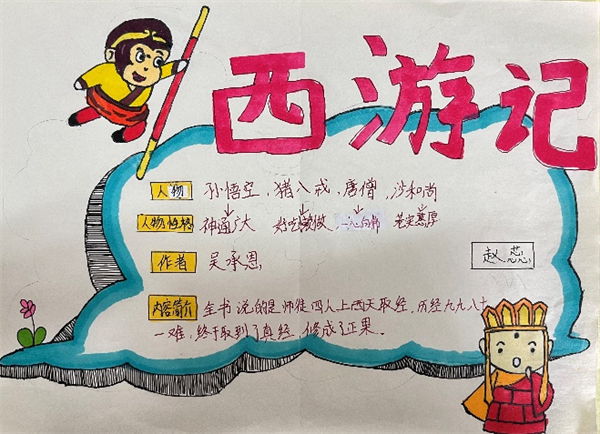 西游记
人物 孙悟空、猪八戒、唐僧、沙和尚
人物性格 神通广大 好吃懒做 一心向佛 老实憨厚
作者 吴承恩
赵蕊
内容简介 全书说的是师徒四人上西天取经，历经九九八十
一难，终于取到了真经，修成了正果。